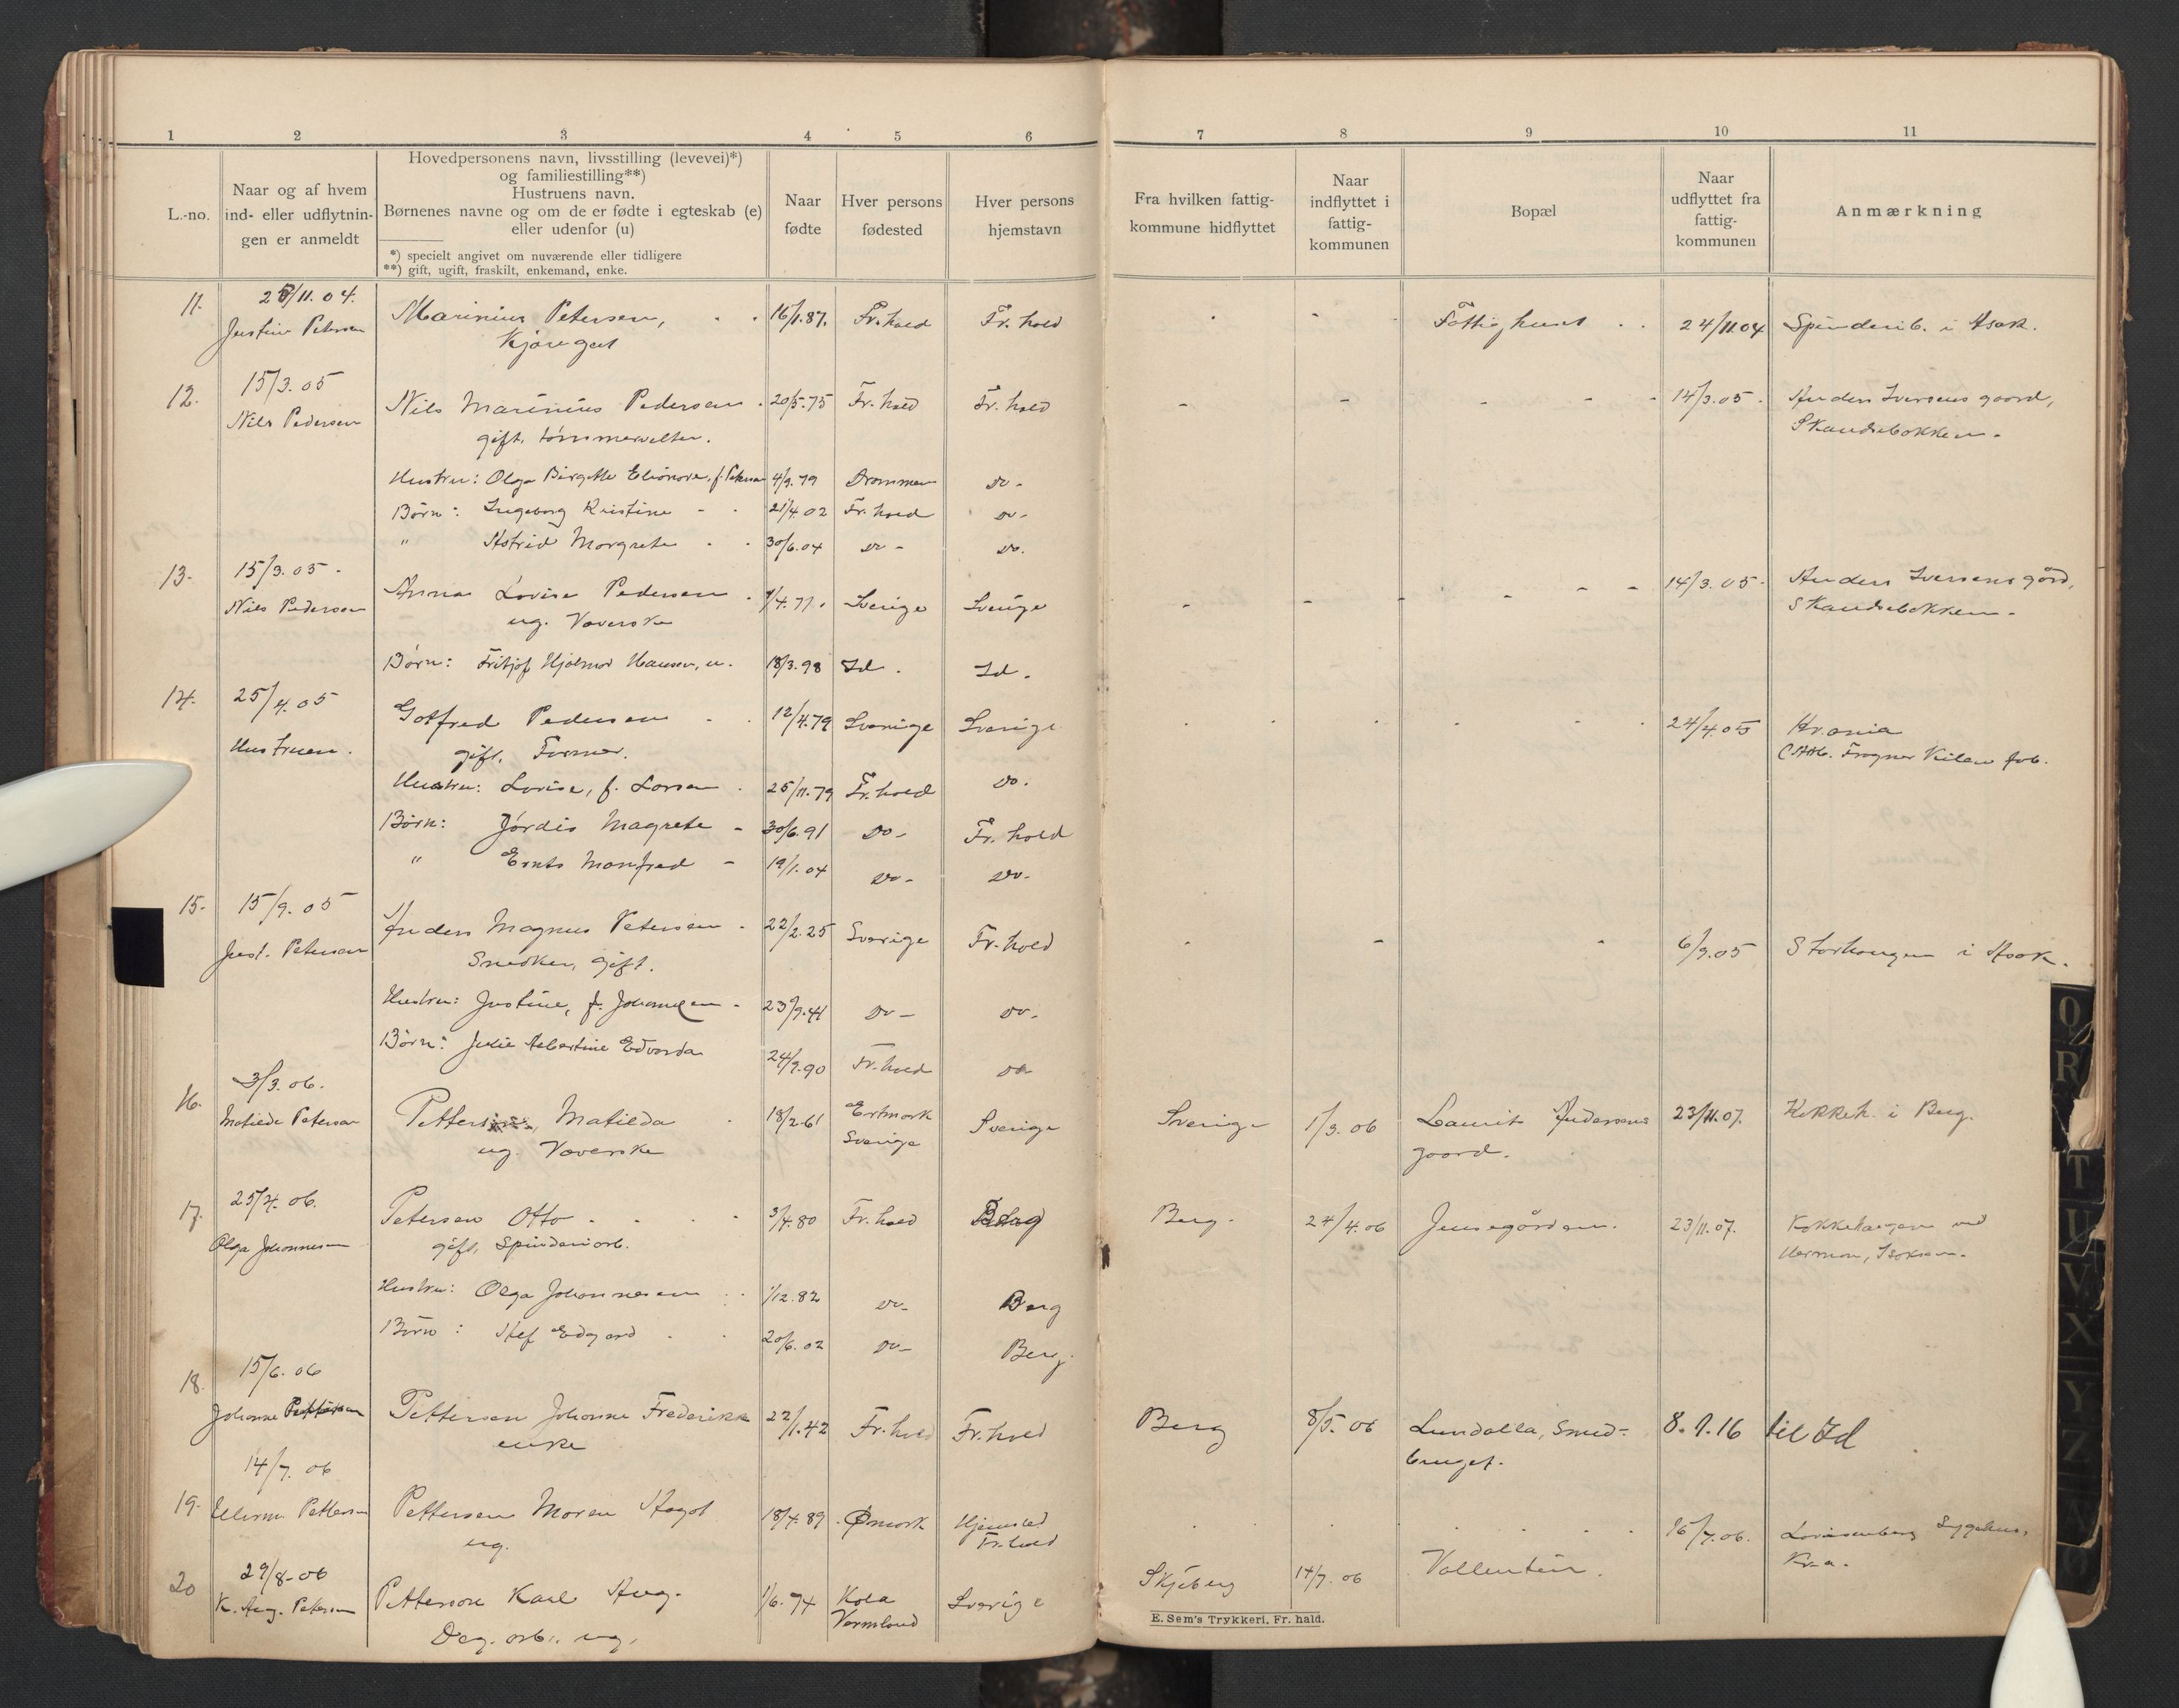 1 2 3 4 5 6 7 8 9 10 11
L.-no.
Naar og af hvem
ind- eller udflytnin-
gen er anmeldt
Hovedpersonens navn, livsstilling (levevei)*)
og familiestilling**)
Hustruens navn.
Børnenes navne og om de er fødte i egteskab (e)
eller udenfor (u)
*) specielt angivet om nuværende eller tidligere
**) gift, ugift, fraskilt, enkemand, enke.
Naar
fødte
Hver persons
fødested
Hver persons
hjemstavn
Fra hvilken fattig-
kommune hidflyttet
Naar
indflyttet i
fattig-
kommunen
Bopæl
Naar
udflyttet fra
fattig-
kommunen
Anmærkning
11. /11.04. Marinius Petersen, 16/1.87. Fr.hald Fr.hald Fattighuset 24/11.04 Spinderib. i Asak.
Justine Petersen
12. 15/3.05 Nils Marinius Pedersen 20/5.75 Fr.hald Fr.hald 14/3.05 Anders Iversens gaard,
Nils Pedersen gift, tømmervelter. Skandsebakken.
Hustru: Olga Birgitte Elionore, f. Petersen 4/9.79 Drammen Do-
Børn: Ingeborg Kristine 21/4.02 Fr.hald Do-
" Astrid Margrete 30/6.04 Do- Do.
13. 15/3.05. Anna Lovise Pedersen /4.77. Sverige Sverige 14/3.05. Anders Iversens gård,
Nils Pedersen ug. Væverske Skandsebakken.
Børn: Fritjof Hjalmar Hansen, u. 18/3.98 Id. Id.
14. 25/4.05 Gotfred Pedersen 12/4.79 Sverige Sverige 24/4.05 Kr.ania
Hustruen. gift, Former. Frogner Kilen fab.
Hustru: Lovise, f. Larsen 25/11.79 Fr.hald Do.
Børn: Jørdis Magrete 30/6.91 Do- Fr.hald
" Ernts Manfred 19/1.04 Do- Do-
15. 15/9.05 Anders Magnus Petersen 22/2.25 Sverige Fr.hald 6/9.05 Storhaugen i Asak.
Just. Petersen Snedker, gift.
Hustru: Justine, f. Johansen 23/9.41 Do- Do-
Børn: Julie Albertine Edvarda 24/9.90 Fr.hald Do
16. 3/3.06. Petters, Matilda 18/2.61 Ertmark Sverige Sverige 1/3.06 Laurits Andersens 23/11.07. Kokkeh. i Berg.
Matilde Petersen ug. Væverske Sverige gaard.
17. 25/4.06. Petersen Otto 3/4.80 Fr.hald Berg Berg. 24/4.06 Jensegården. 23/11.07. Kokkehaugen ved
Olga Johannesen gift, Spinderiarb. Herman, Isaksen.
Hustru: Olga Johannesen 1/12.82 Do- Berg
Børn: Alf Edgard 20/6.02 Do- Berg
18. 15/6.06 Pettersen Johanne Frederikke 22/1.42 Fr.hald Fr.hald Berg 8/5.06 Lundalla, Smed- 8.9.16 til Id
Johanne Pettersen enke bruget.
19. 14/7.06 Pettersen Maren Aagot 18/4.89 Ømark Hjemsted 16/7.06. Lovisenberg Sygehus,
Pettersen ug. Fr.hald Kr.a.
20 29/8-06 Petterson Karl Aug. 1/6.74 Kola Sverige Skjeberg 14/7.06 Vollentin.
K. Aug. Petersen Dag. arb., ug. Vermland
E. Sem's Trykkeri. Fr. hald.
O
R
T
U
V
X
Y
Z
Æ
Ø